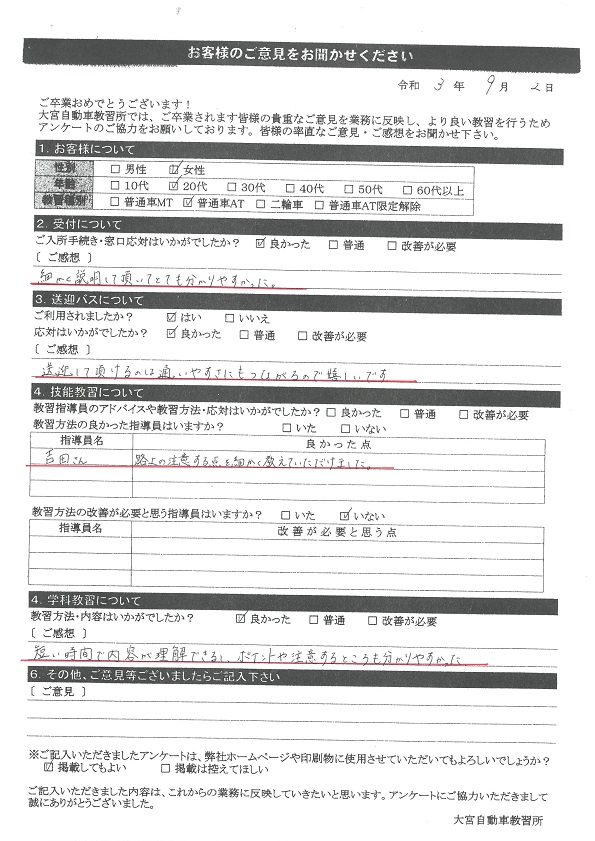 お客様のご意見をお聞かせください
令和 3 年 9 月 2 日
ご卒業おめでとうございます！
大宮自動車教習所では、ご卒業されます皆様の貴重なご意見を業務に反映し、より良い教習を行うため
アンケートのご協力をお願いしております。皆様の率直なご意見・ご感想をお聞かせ下さい。
1. お客様について
性別 □ 男性 ☑ 女性
年齢 □ 10代 ☑ 20代 □ 30代 □ 40代 □ 50代 □ 60代以上
教習種別 □ 普通車MT ☑ 普通車AT □ 二輪車 □ 普通車AT限定解除
2. 受付について
ご入所手続き・窓口応対はいかがでしたか？ ☑ 良かった □ 普通 □ 改善が必要
〔 ご感想 〕
細かく説明して頂いてとても分かりやすかった。
3. 送迎バスについて
ご利用されましたか？ ☑ はい □ いいえ
応対はいかがでしたか？ ☑ 良かった □ 普通 □ 改善が必要
〔 ご感想 〕
送迎して頂けるのは通いやすさにもつながるので嬉しいです
4. 技能教習について
教習指導員のアドバイスや教習方法・応対はいかがでしたか？ □ 良かった □ 普通 □ 改善が必要
教習方法の良かった指導員はいますか？ □ いた □ いない
指導員名 良かった点
吉田さん 路上の注意する点を細かく教えていただけました。
教習方法の改善が必要と思う指導員はいますか？ □ いた ☑ いない
指導員名 改善が必要と思う点
4. 学科教習について
教習方法・内容はいかがでしたか？ ☑ 良かった □ 普通 □ 改善が必要
〔 ご感想 〕
短い時間で内容が理解できるし、ポイントや注意するところも分かりやすかった
6. その他、ご意見等ございましたらご記入下さい
〔 ご意見 〕
※ご記入いただきましたアンケートは、弊社ホームページや印刷物に使用させていただいてもよろしいでしょうか？
☑ 掲載してもよい □ 掲載は控えてほしい
ご記入いただきました内容は、これからの業務に反映していきたいと思います。アンケートにご協力いただきまして
誠にありがとうございました。
大宮自動車教習所